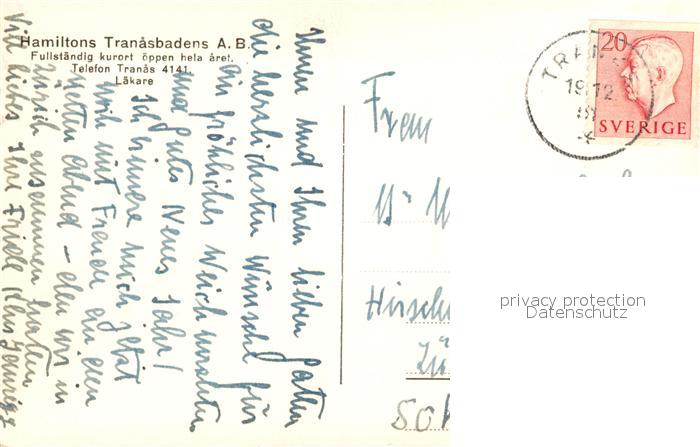 Hamiltons Tranåsbadens A.B.
Fullständig kurort öppen hela året.
Telefon Tranås 4141.
Läkare
Ihnen und Ihrem lieben Gatten
die herzlichsten Wünsche für
ein fröhliches Weihnachten
und gutes Neues Jahr!
Ich erinnere mich jetzt
noch mit Freude an den
netten Abend – den wir in
Zürich zusammen hatten
Viel liebes Ihre Friedl
TRANÅS
19.12.
20
SVERIGE
Frau
Hirsch
Zü
privacy protection
Datenschutz